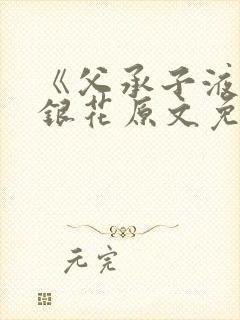 《父承子液
銀花原文免
元完